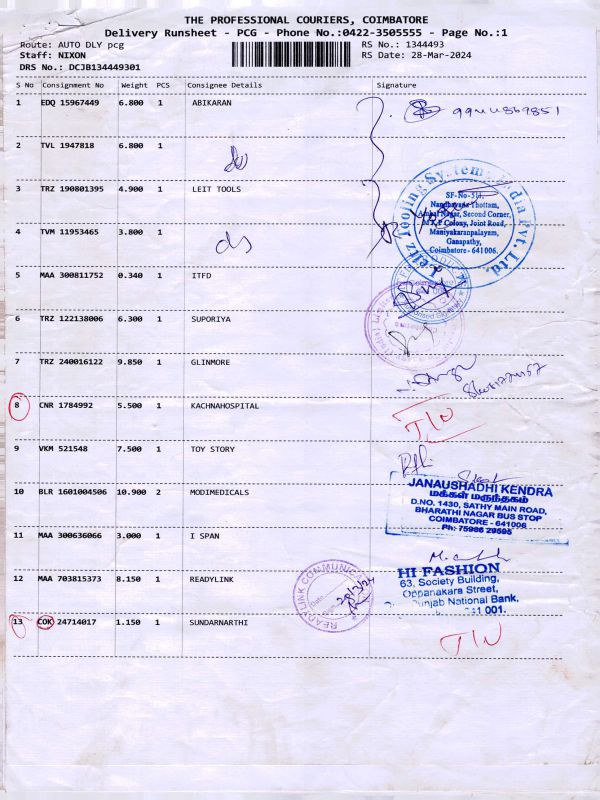 THE PROFESSIONAL COURIERS, COIMBATORE
Delivery Runsheet - PCG - Phone No.:0422-3505555 - Page No.:1
Route: AUTO DLY pcg RS No.: 1344493
Staff: NIXON RS Date: 28-Mar-2024
DRS No.: DCJB134449301
S No Consignment No Weight PCS Consignee Details Signature
1 EDQ 15967449 6.800 1 ABIKARAN
2 TVL 1947818 6.800 1
3 TRZ 190801395 4.900 1 LEIT TOOLS
4 TVM 11953465 3.800 1
Leitz Tooling Systems India Pvt. Ltd.
Nandhavana Thottam,
Second Corner,
Colony, Joint Road,
Maniyakaranpalayam,
Ganapathy,
Coimbatore - 641006.
5 MAA 300811752 0.340 1 ITFD
6 TRZ 122138006 6.300 1 SUPORIYA
7 TRZ 240016122 9.850 1 GLINMORE
8 CNR 1784992 5.500 1 KACHNAHOSPITAL
9 VKM 521548 7.500 1 TOY STORY
10 BLR 1601004506 10.900 2 MODIMEDICALS
JANAUSHADHI KENDRA
மக்கள் மருந்தகம்
D.NO. 1430, SATHY MAIN ROAD,
BHARATHI NAGAR BUS STOP
COIMBATORE - 641006
Ph: 75986 29595
11 MAA 300636066 3.000 1 I SPAN
12 MAA 703815373 8.150 1 READYLINK
READYLINK COMMUNICA
28/3/24
HI FASHION
63, Society Building,
Oppanakara Street,
Punjab National Bank.
001.
13 COK 24714017 1.150 1 SUNDARNARTHI